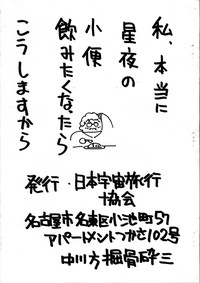 私、本当に
星夜の
小便
飲みたくなったら
こうしますから
発行・日本宇宙旅行
協会
名古屋市名東区小池町57
アパートメントつかさ102号
中川方掘骨砕三